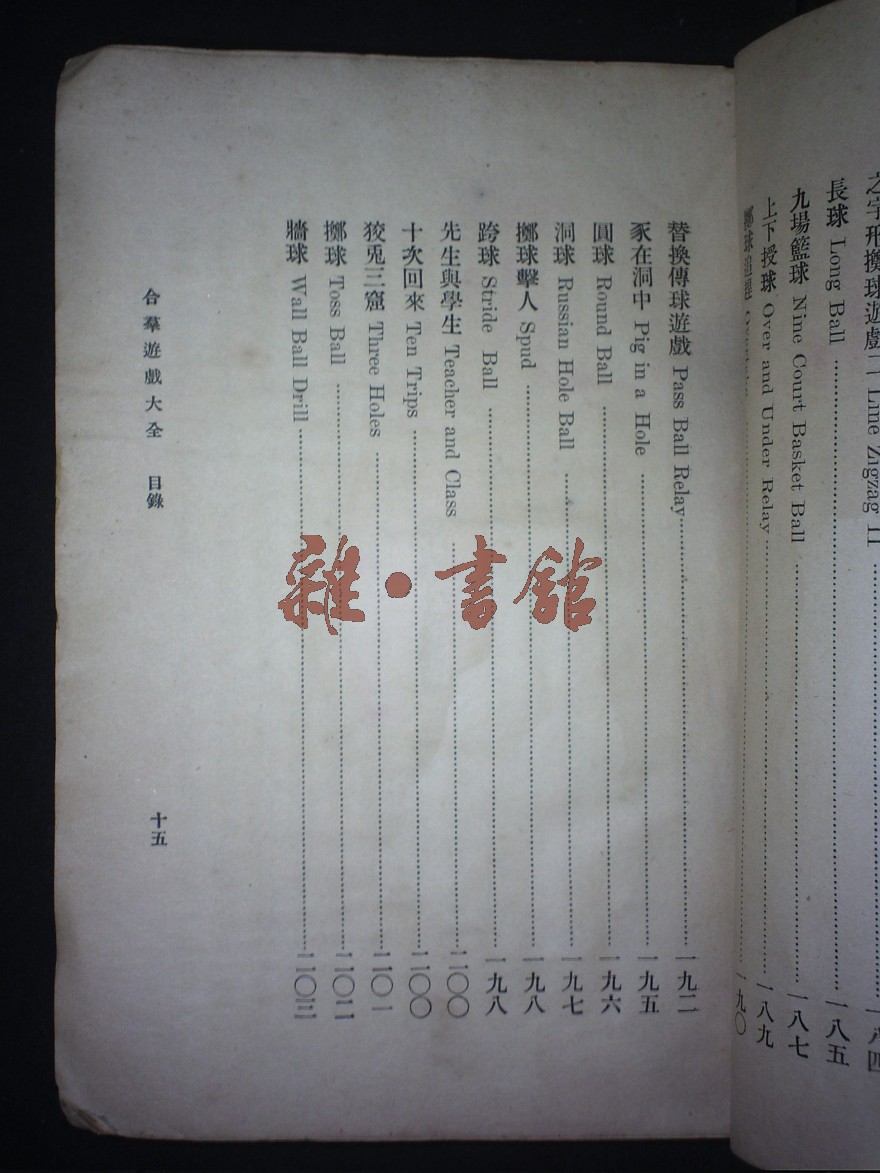 之字形擲球遊戲二 Line Zigzag II 一八四
長球 Long Ball 一八五
九場籃球 Nine Court Basket Ball 一八七
上下授球 Over and Under Relay 一八九
一九〇
替換傳球遊戲 Pass Ball Relay 一九二
豕在洞中 Pig in a Hole 一九五
圓球 Round Ball 一九六
洞球 Russian Hole Ball 一九七
擲球擊人 Spud 一九八
跨球 Stride Ball 一九八
先生與學生 Teacher and Class 二〇〇
十次回來 Ten Trips 二〇〇
狡兎三窟 Three Holes 二〇一
擲球 Toss Ball 二〇二
牆球 Wall Ball Drill 二〇三
合羣遊戲大全 目錄 十五
雜·書館